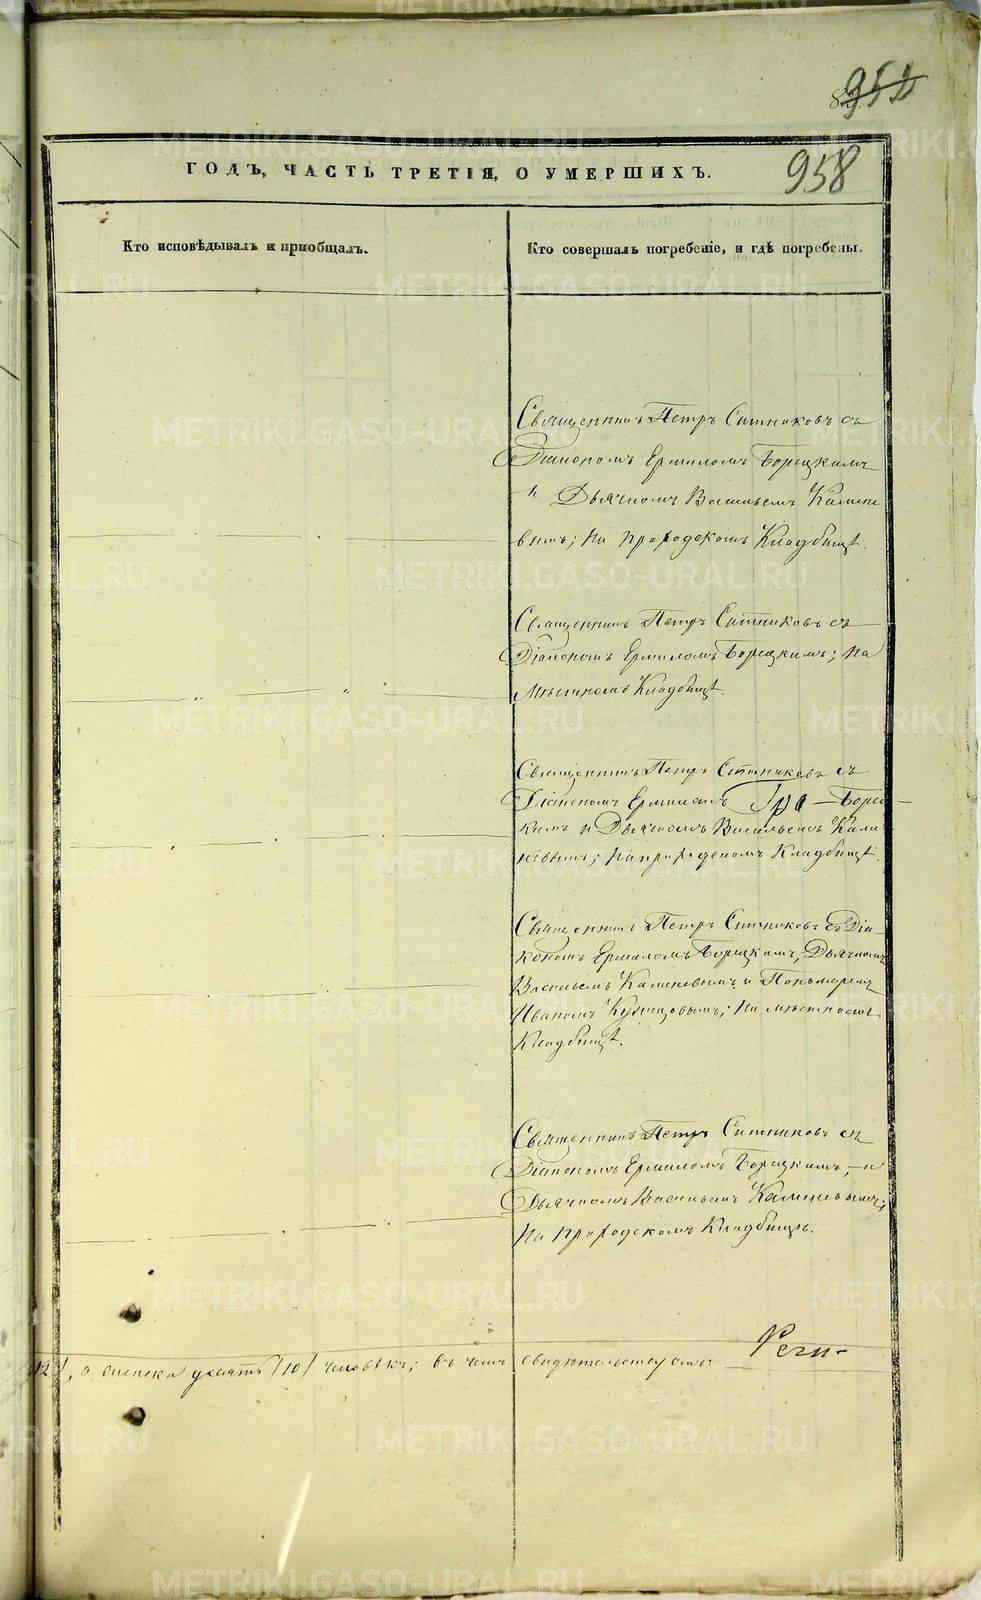 958
ГОДЪ, ЧАСТЬ ТРЕТІЯ, О УМЕРШИХЪ.
Кто исповѣдывалъ и приобщалъ.
Кто совершалъ погребеніе, и гдѣ погребены.
Священникъ Петръ Ситниковъ съ
Діакономъ Ермиломъ Борецкимъ
и Дьячкомъ Васильемъ Калине
вымъ; на городскомъ Кладбищѣ.
Священникъ Петръ Ситниковъ съ
Діакономъ Ермиломъ Борецкимъ; на
мѣстномъ Кладбищѣ.
Священникъ Петръ Ситниковъ съ
Діакономъ Ермиломъ Борец
кимъ и Дьячкомъ Васильемъ Кали
невымъ; на Кладбищѣ.
Священникъ Петръ Ситниковъ съ Діа-
кономъ Ермиломъ Борецкимъ, Дьячкомъ
Васильемъ Калиневымъ и Пономаремъ
Иваномъ Кузнецовымъ; на мѣстномъ
Кладбищѣ.
Священникъ Петръ Ситниковъ съ
Діакономъ Ермиломъ Борецкимъ, и
Дьячкомъ Васильемъ Калиневымъ;
на городскомъ Кладбищѣ.
12/, а женска десять /10/ человѣкъ; въ чемъ свидѣтельствуемъ:
METRIKI.GASO-URAL.RU